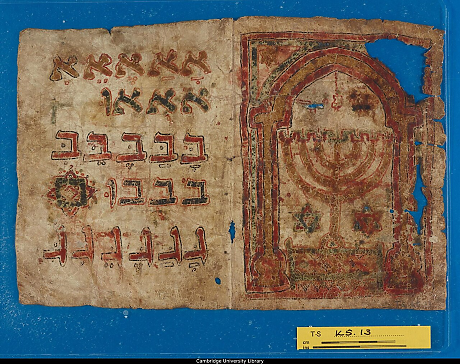 א א א א א
א א או
ב ב ב ב ב
ב ב בו
ג ג ג ג ג ג
T-S K.5. 13
cm
Cambridge University Library